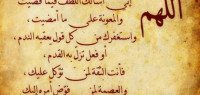 اللهم
إني أسألك اللطف فيما قضيت
والمعونة على ما أمضيت،
وأستغفرك من كل قول يعقبه الندم،
أو فعل تزل به القدم،
فأنت الثقة لمن توكل عليك،
والعصمة لمن فوض أمره إليك